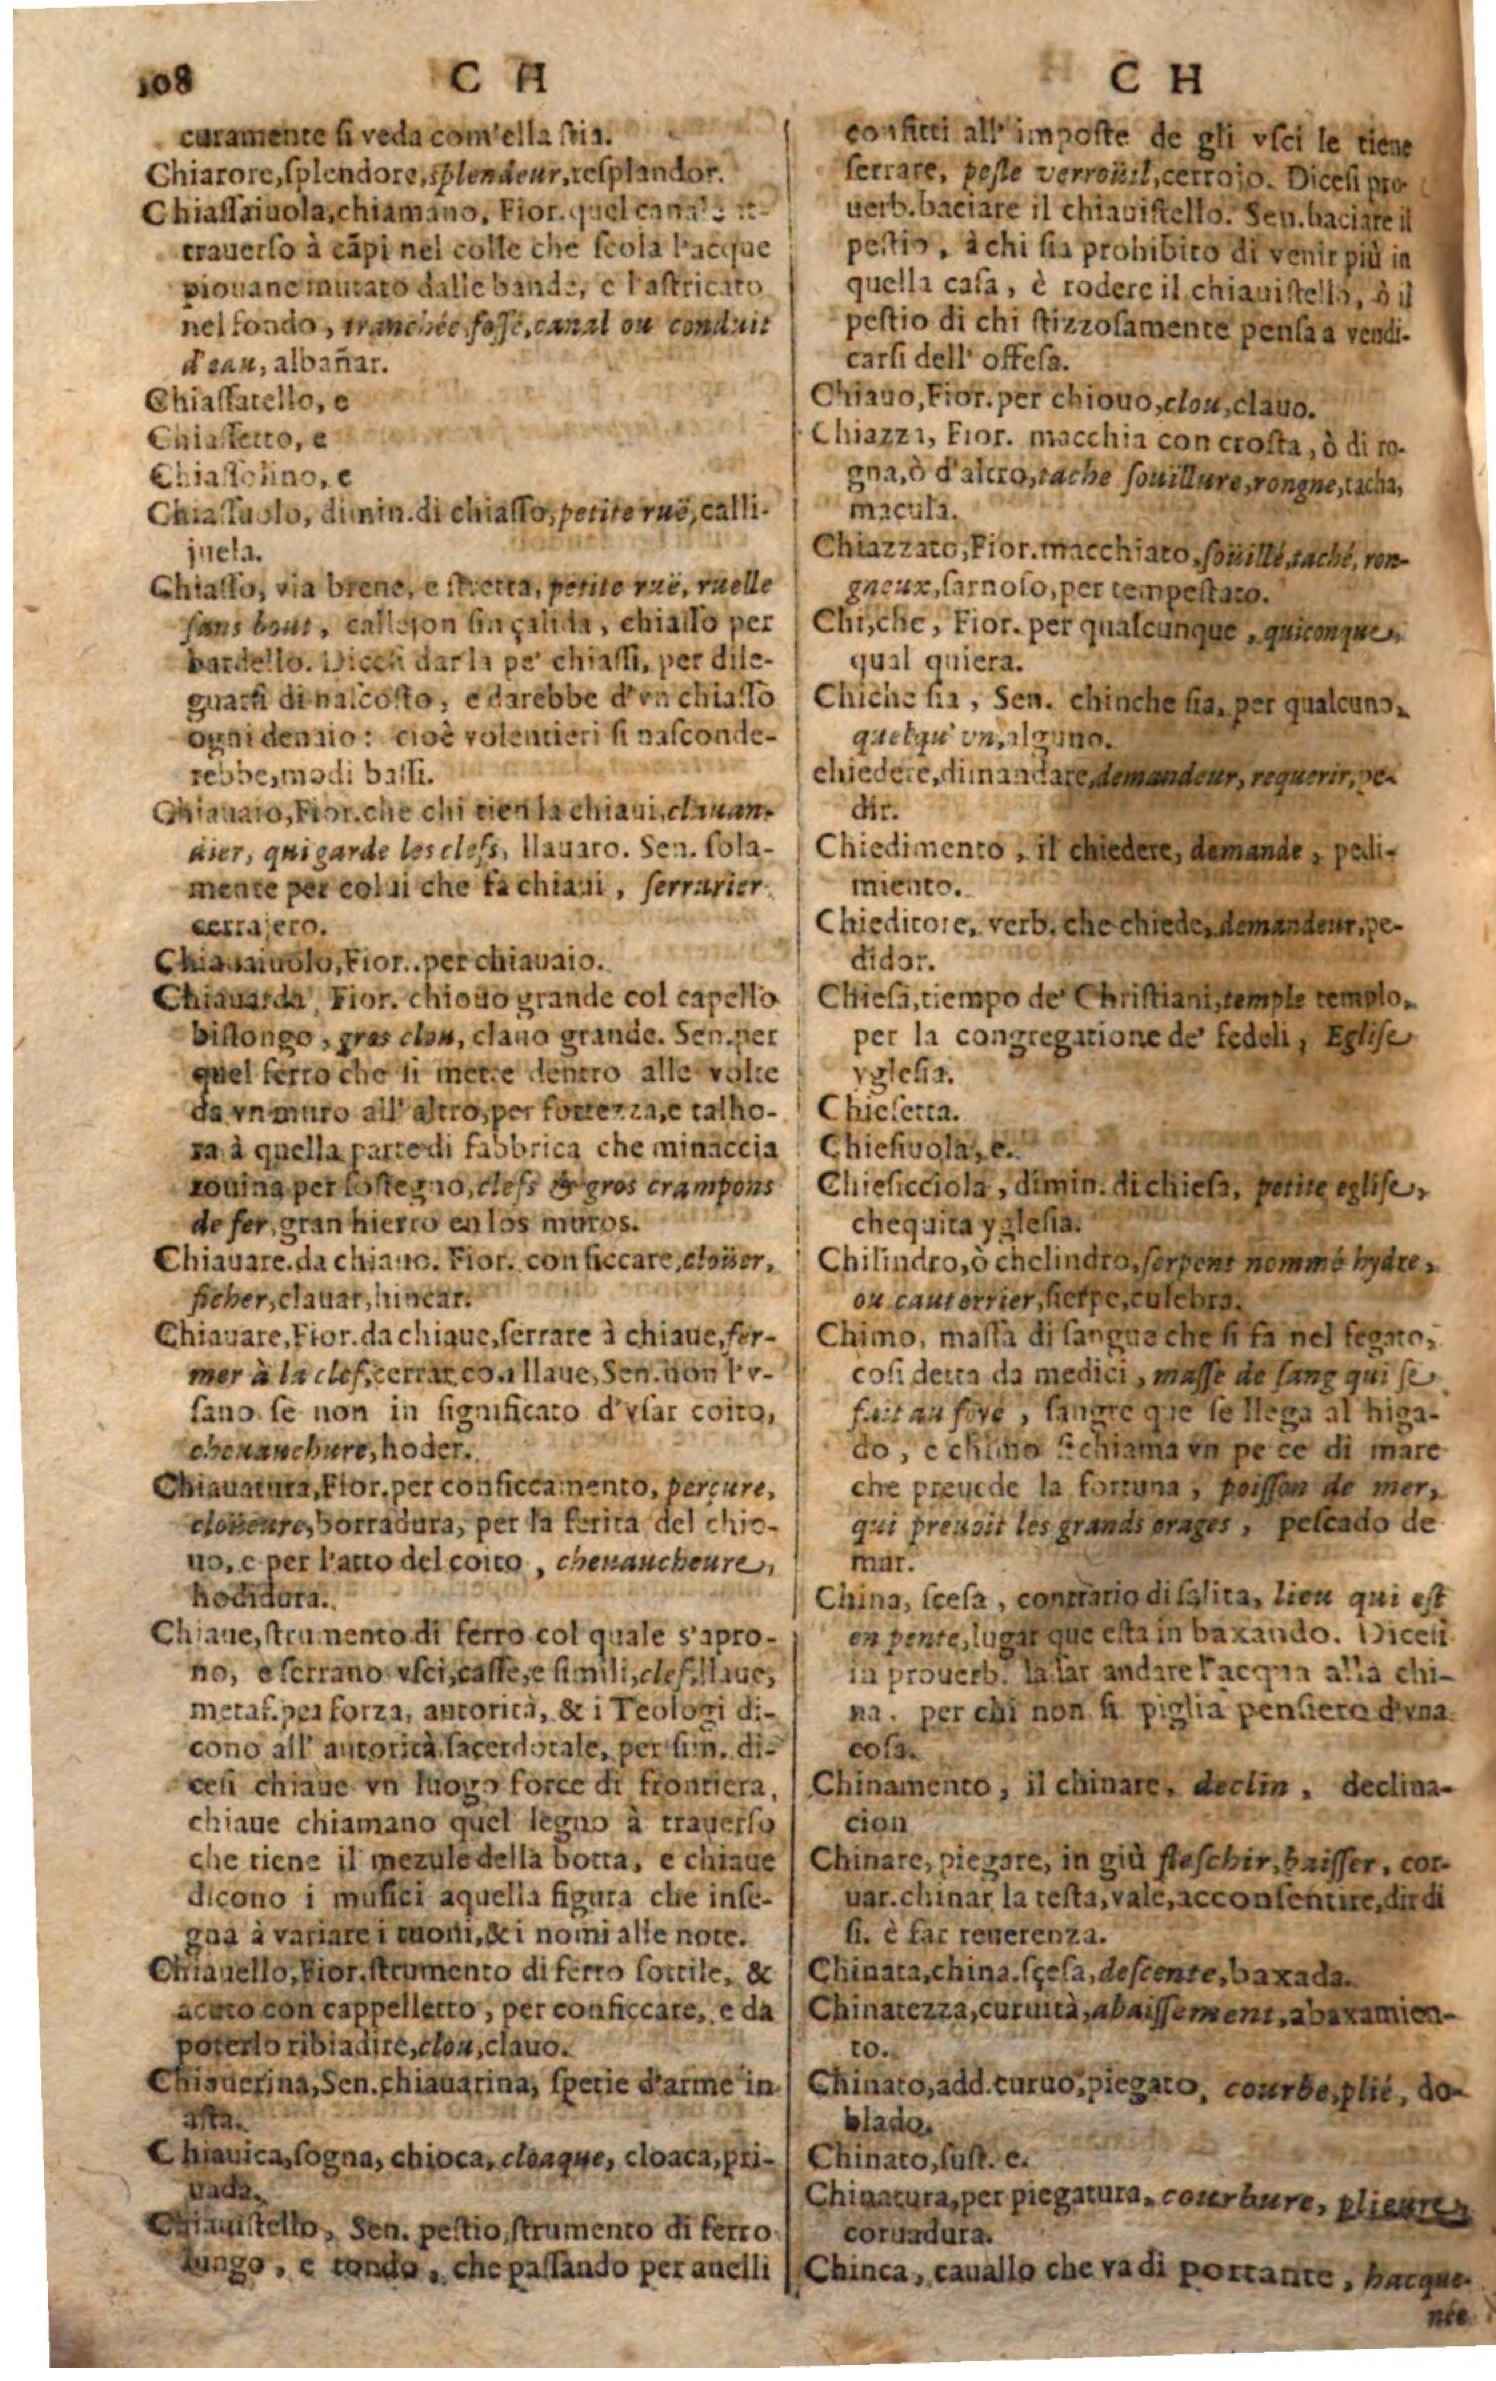 108
C H
curamente ſi veda com'ella ſtia.
Chiarore, ſplendore, ſplendeur, reſplandor.
Chiaſſaiuola, chiamano, Fior. quel canale
trauerſo à cãpi nel colle che ſcola l'acque
piouane murato dalle bande, e laſtricato
nel fondo, tranchée foſſé, canal ou conduit
d'eau, albañar.
Chiaſſatello, e
Chiaſſetto, e
Chiaſſolino, e
Chiaſſuolo, dimin. di chiaſſo, petite ruë, calli-
juela.
Chiaſſo, via breue, e ſtretta, petite ruë, ruelle
ſans bout, callejon ſin çalida, chiaſſo per
bardello. Diceſi darla pe' chiaſſi, per dile-
guarſi di naſcoſto, e darebbe d'vn chiaſſo
ogni denaio: cioè volentieri ſi naſconde-
rebbe, modi baſſi.
Chiauaio, Fior. che chi tien la chiaui, clauan-
dier, qui garde les clefs, llauaro. Sen. ſola-
mente per colui che fa chiaui, ſerrurier
cerrajero.
Chiauaiuolo, Fior. per chiauaio.
Chiauarda, Fior. chiouo grande col capello
biſlongo, gros clou, clauo grande. Sen. per
quel ferro che ſi mette dentro alle volte
da vn muro all' altro, per fortezza, e talho-
ra à quella parte di fabbrica che minaccia
rouina per ſoſtegno, clefs & gros crampons
de fer, gran hierro en los muros.
Chiauare. da chiauo. Fior. conficcare, cloüer,
ficher, clauar, hincar.
Chiauare, Fior. da chiaue, ſerrare à chiaue, fer-
mer à la clef, cerrar con llaue, Sen. non l'v-
ſano ſe non in ſignificato d'vſar coito,
cheuauchure, hoder.
Chiauatura, Fior. per conficcamento, perçure,
cloüeure, borradura, per la ferita del chio-
uo, e per l'atto del coito, cheuaucheure,
hodidura.
Chiaue, ſtrumento di ferro col quale s'apro-
no, e ſerrano vſci, caſſe, e ſimili, clef, llaue,
metaf. per forza, autorità, & i Teologi di-
cono all' autorità ſacerdotale, per ſim. di-
ceſi chiaue vn luogo forte di frontiera,
chiaue chiamano quel legno à trauerſo
che tiene il mezule della botta, e chiaue
dicono i muſici aquella figura che inſe-
gna à variare i tuoni, & i nomi alle note.
Chiauello, Fior. ſtrumento di ferro ſottile, &
acuto con cappelletto, per conficcare, e da
poterlo ribiadire, clou, clauo.
Chiauerina, Sen. chiauarina, ſpetie d'arme in
aſta.
Chiauica, fogna, chioca, cloaque, cloaca, pri-
uada.
Chiauiſtello, Sen. peſtio, ſtrumento di ferro
lungo, e tondo, che paſſando per anelli
C H
confitti all' impoſte de gli vſci le tiene
ſerrate, peſle verroüil, cerrojo. Diceſi pro-
uerb. baciare il chiauiſtello. Sen. baciare il
peſtio, à chi ſia prohibito di venir più in
quella caſa, è rodere il chiauiſtello, ò il
peſtio di chi ſtizzoſamente penſa a vendi-
carſi dell' offeſa.
Chiauo, Fior. per chiouo, clou, clauo.
Chiazza, Fior. macchia con croſta, ò di ro-
gna, ò d'altro, tache ſouillure, rongne, tacha,
macula.
Chiazzato, Fior. macchiato, ſoüillé, taché, ron-
gneux, ſarnoſo, per tempeſtato.
Chi, che, Fior. per qualcunque, quiconque,
qual quiera.
Chiche ſia, Sen. chinche ſia, per qualcuno,
quelqu' vn, alguno.
chiedere, dimandare, demandeur, requerir, pe-
dir.
Chiedimento, il chiedere, demande, pedi-
miento.
Chieditore, verb. che chiede, demandeur, pe-
didor.
Chieſa, tiempo de' Chriſtiani, temple templo,
per la congregatione de' fedeli, Egliſe
ygleſia.
Chieſetta.
Chieſiuola, e.
Chieſicciola, dimin. di chieſa, petite egliſe,
chequita ygleſia.
Chilindro, ò chelindro, ſerpent nommé hydre,
ou cauterrier, ſierpe, culebra.
Chimo, maſſa di ſangue che ſi fa nel fegato,
coſi detta da medici, maſſe de ſang qui ſe
fait au foye, ſangre que ſe llega al higa-
do, e chimo ſi chiama vn peſce di mare
che preuede la fortuna, poiſſon de mer,
qui preuoit les grands orages, peſcado de
mar.
China, ſceſa, contrario di ſalita, lieu qui eſt
en pente, lugar que eſta in baxando. Diceſi
in prouerb. laſſar andare l'acqua alla chi-
na. per chi non ſi piglia penſiero d'vna
coſa.
Chinamento, il chinare, declin, declina-
cion
Chinare, piegare, in giù fleſchir, baiſſer, cor-
uar. chinar la teſta, vale, acconſentire, dir di
ſi. è far reuerenza.
Chinata, china. ſçeſa, deſcente, baxada.
Chinatezza, curuità, abaiſſement, abaxamien-
to.
Chinato, add. curuo, piegato, courbe, plié, do-
blado.
Chinato, ſuſt. e.
Chinatura, per piegatura, courbure, plieure,
coruadura.
Chinca, cauallo che va di portante, hacque-
née